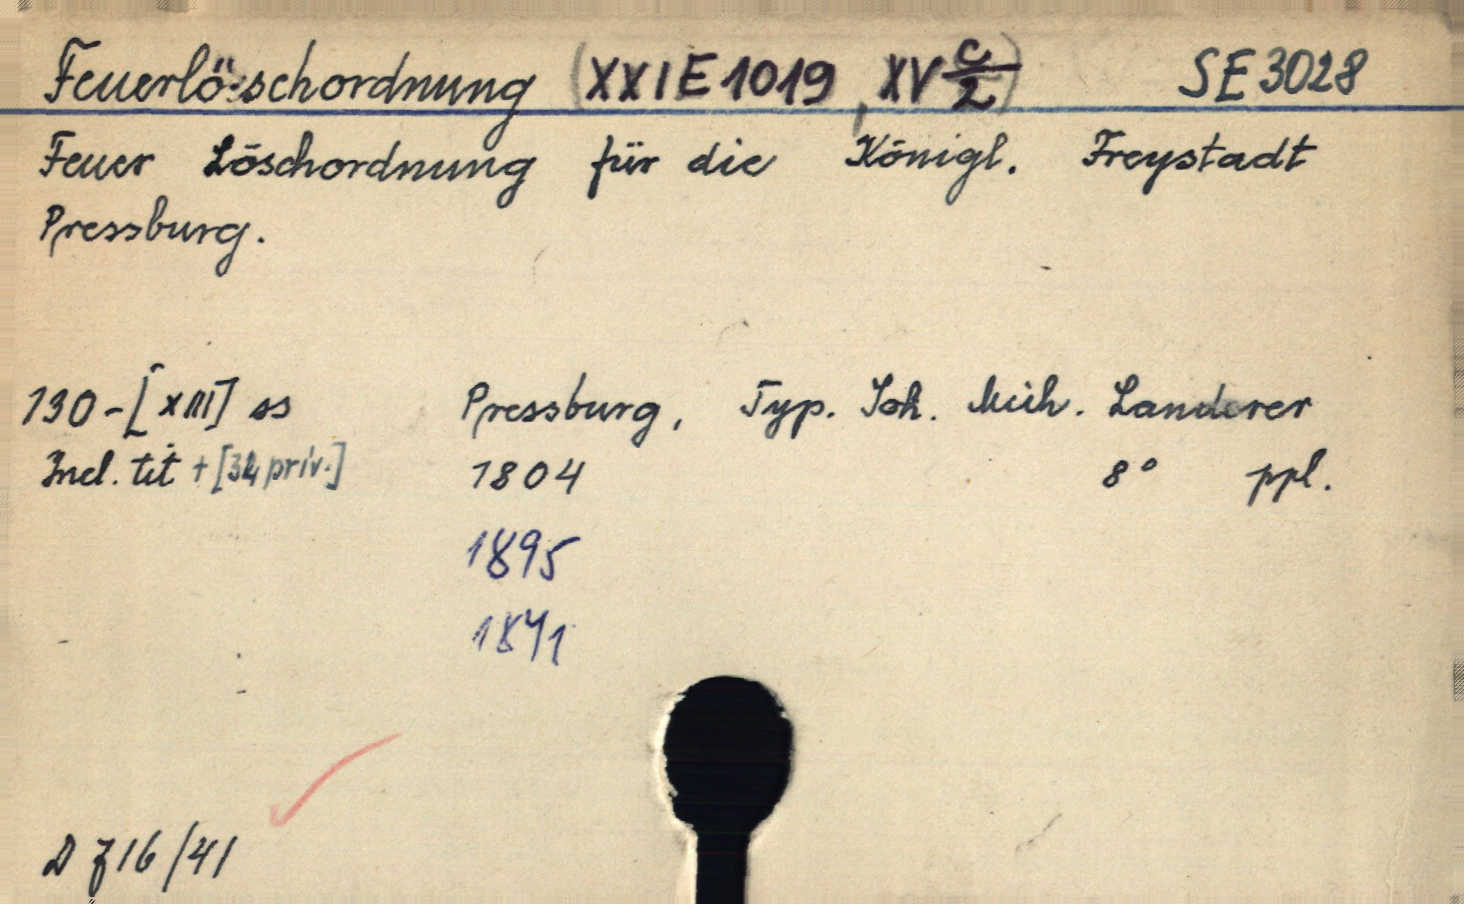 Feuerlöschordnung (XXIE1019, XV c/2) SE3028
Feuer Löschordnung für die Königl. Freystadt
Pressburg.
130-[XIII] ss Pressburg, Typ. Joh. Mich. Landerer
Incl. tit + [34 priv.] 1804 8° ppl.
1895
1841
D f 16/41